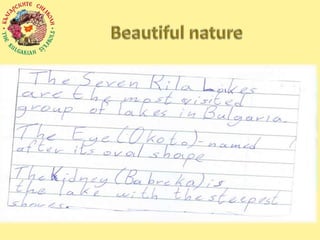 БЪЛГАРСКИТЕ СНЕЖАНКИ
THE BULGARIAN
Beautiful nature
The Seven Rila Lakes
are the most visited
group of lakes in Bulgaria.
The Eye (Okoto)-named
after its oval shape
The Kidney (Babreka) is
the lake with the steepest
shores.